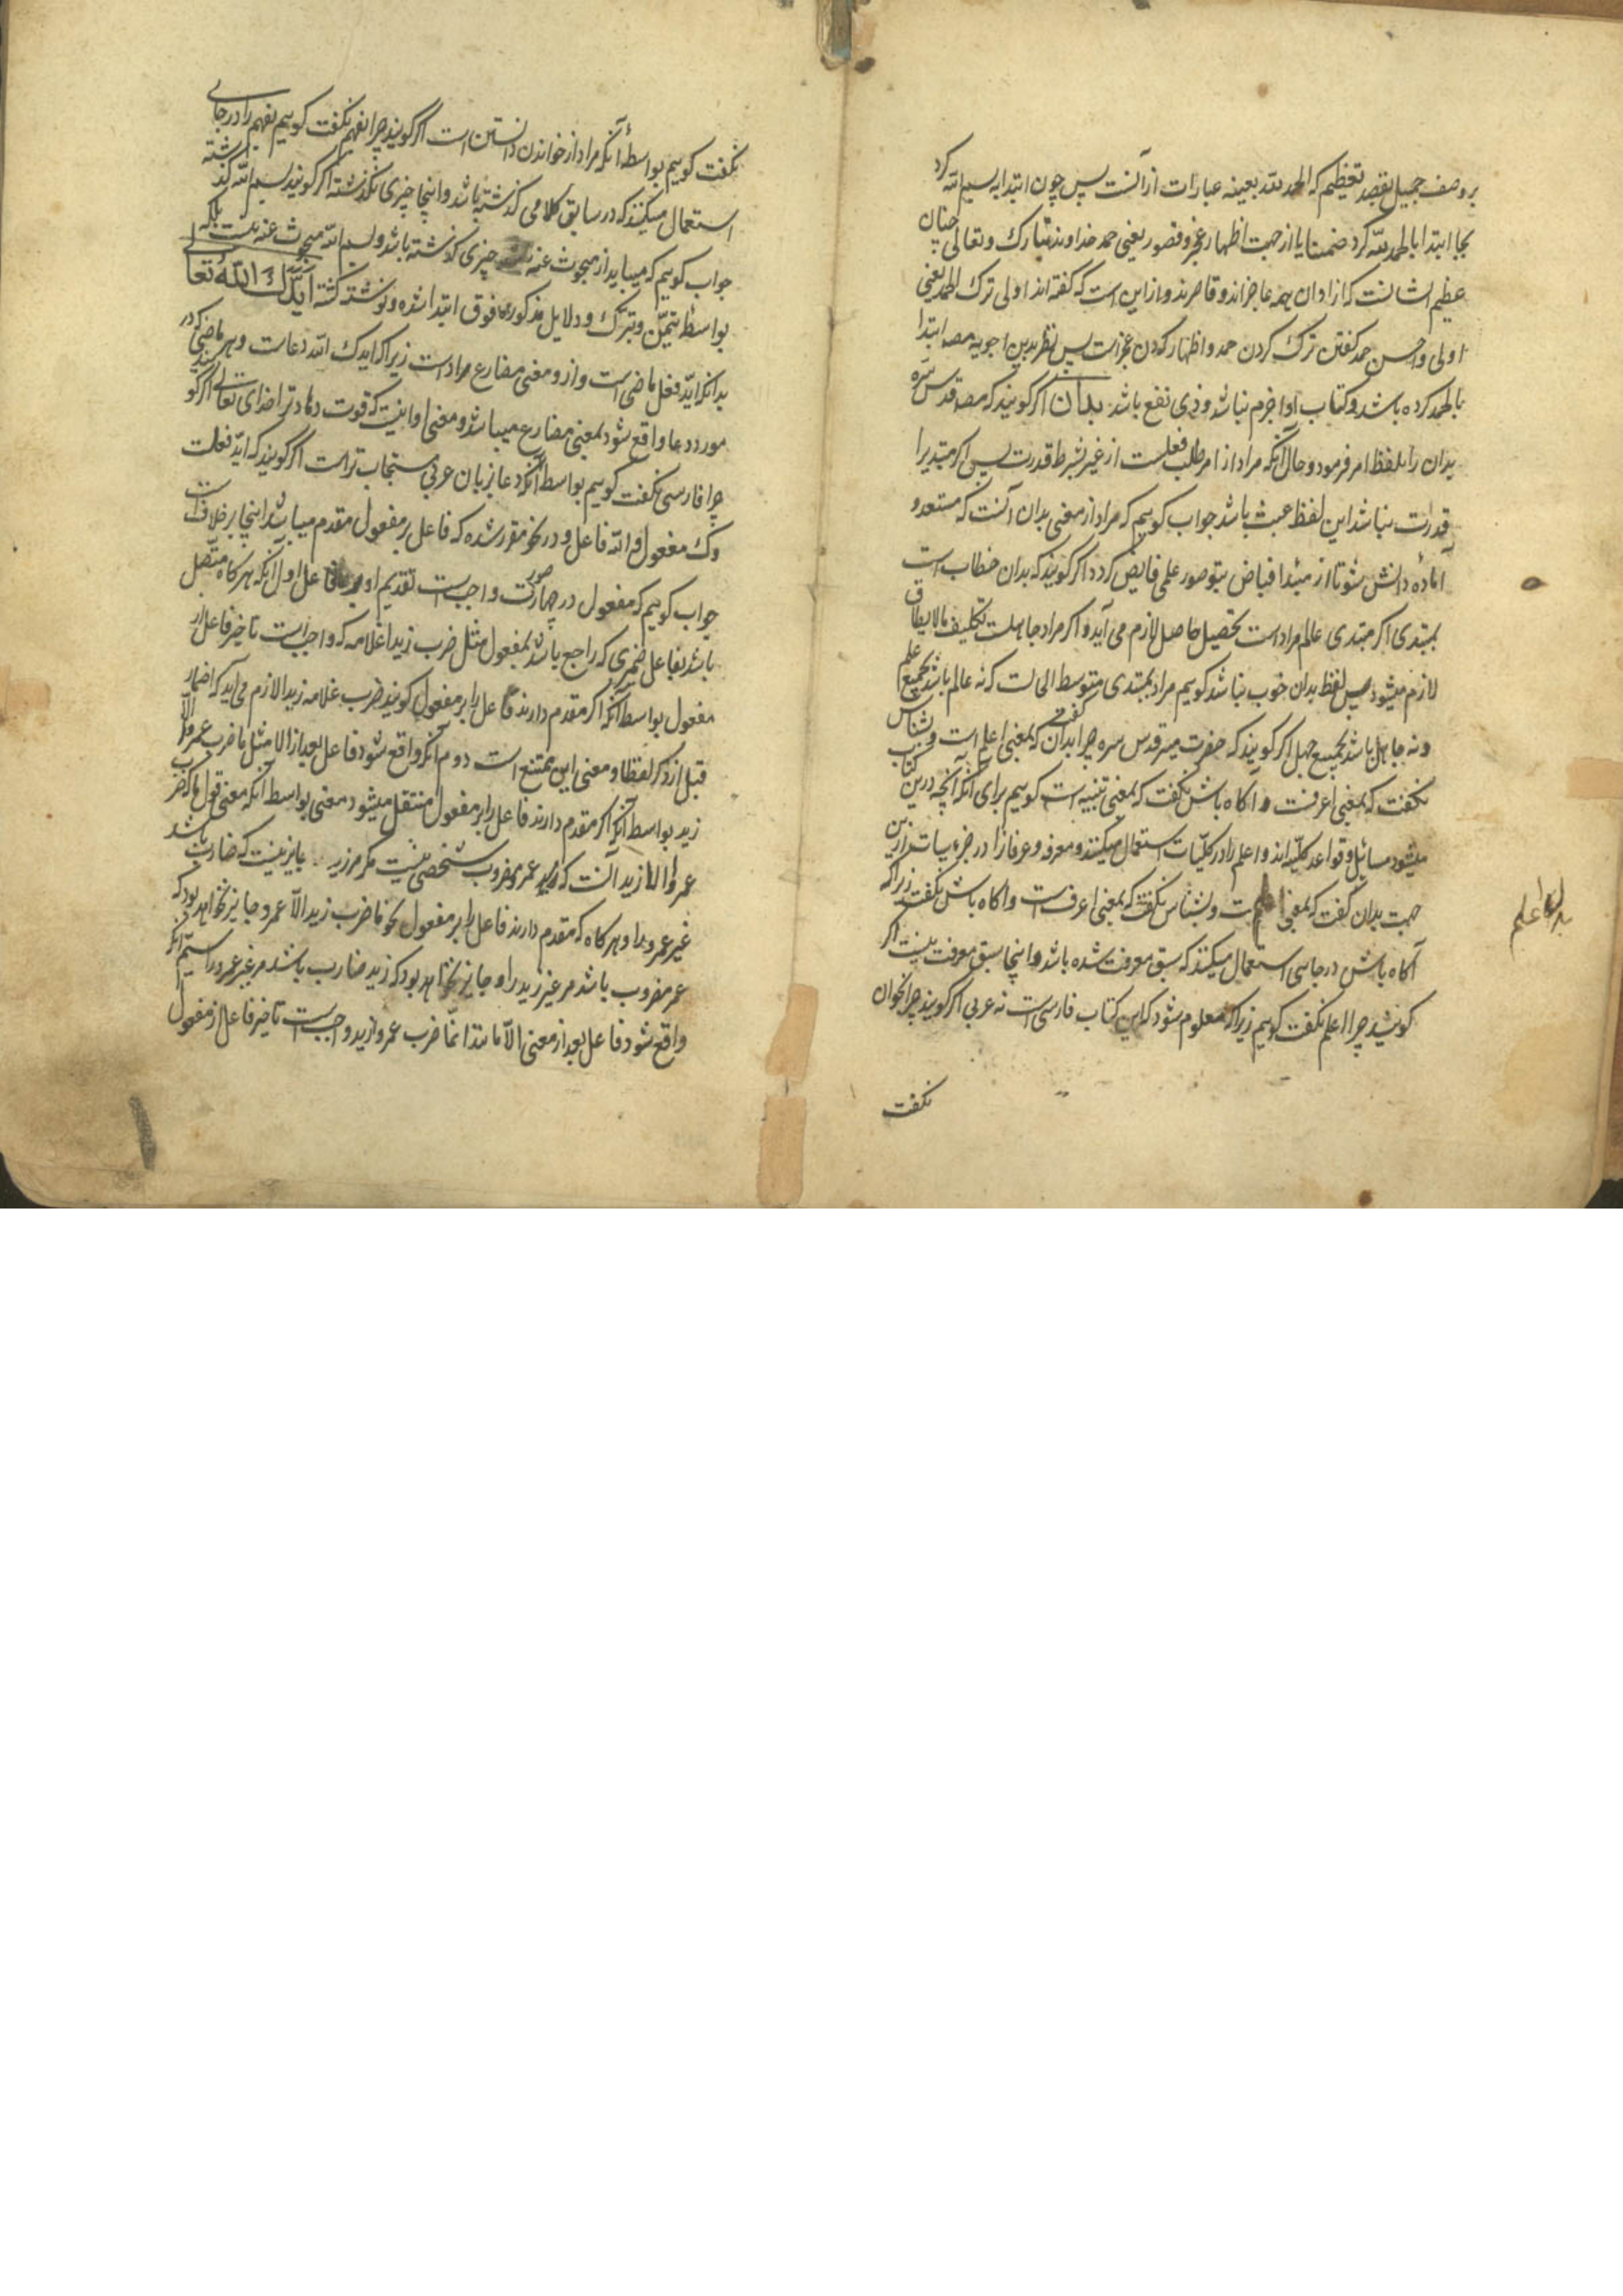 بر وصف جمیل بقصد تعظیم که الحمد لله بعینه عبارات ازآنست پس چون ابتدا به بسم الله کرد
بجا ابتدا بالحمد لله کرد ضمنا یا از جهت اظهار عجز و قصور یعنی حمد خداوند تبارک و تعالی چنان
عظیم الشانست که از ادان همه عاجزاند و قاصرند و ازاین است که کفته اند اولی ترک الحمد یعنی
اولی و احسن حمد کفتن ترک کردن حمد و اظهار کردن عجز است پس نظر بدین اجوبه مصـ ابتدا
بالحمد کرده باشد و کتاب او اجزم نباشد و ذی نفع باشد بدان اکر کویند که مصـ قدس سره
بدان را بلفظ امر فرمود و حال آنکه مراد از امر طلب فعلست از غیر بشرط قدرت پس اکر مبتدیرا
قدرت نباشد این لفظ عبث باشد جواب کوییم که مراد از معنی بدان آنست که مستعد و
آمادهٔ دانش شو تا از مبدا فیاض بتو صور علمی فایض کردد اکر کویند که بدان خطاب است
بمبتدی اکر مبتدی عالم مراد است تحصیل حاصل لازم می آید و اکر مراد جاهلست تکلیف مالایطاق
لازم میشود پس لفظ بدان خوب نباشد کوییم مراد بمبتدی متوسط الحالست که نه عالم باشد بجمیع علم
و نه جاهل باشد بجمیع جهل اکر کویند که حضرت میر قدس سره چرا بدان گفت که بمعنی اعلم است و بشناس
نکفت که بمعنی اعرفست و آکاه باش نکفت که بمعنی تنبیه است کوییم برای آنکه آنچه درین کتاب
میشود مسائل و قواعد کلیه اند و اعلم را در کلیات استعمال میکنند و معرفه و عرفان را در جزییات ازین
جهت بدان گفت که بمعنی اعلم است و بشناس نکفت که بمعنی اعرف است و اکاه باش نکفت زیرا که
آکاه باش در جایی استعمال میکنند که سبق معرفت شده باشد و اینجا سبق معرفت نیست اکر
کویند چرا اعلم نکفت کوییم زیرا که معلوم شود که این کتاب فارسی است نه عربی اکر کویند چرا بخوان
نکفت
اعلم
نکفت کوییم بواسطهٔ آنکه مراد از خواندن دانستن است اکر کویند چرا بفهم نکفت کوییم بفهم را در جایی
استعمال میکنند که در سابق کلامی کذشته باشد و اینجا چیزی نکذشته اکر کویند بسم الله کذشته
جواب کوییم که میباید از مبحوث عنه چیزی کذشته باشد و بسم الله مبحوث عنه نیست بلکه
بواسطهٔ تیمّن و تبرّک و دلایل مذکوره فوق ابتدا شده و نوشته کشته ایّدک الله تعالی
بدانکه ایّد فعل ماضی است و ازو معنی مضارع مراد است زیرا که ایدک الله دعاست و هر ماضی که در
مورد دعا واقع شود بمعنی مضارع میباشد و معنی او اینست که قوت دهاد ترا خدای تعالی اکر کویند
چرا فارسی نکفت کوییم بواسطه آنکه دعا بزبان عربی مستجاب تر است اکر کویند که ایّد فعلست
و ک مفعول و الله فاعل و در نحو مقرر شده که فاعل بر مفعول مقدم میباشد اینجا بر خلافست
جواب کوییم که مفعول در چهار صورت واجب است تقدیم او بر فاعل اول آنکه هرکاه متصل
باشد بفاعل ضمیری که راجع باشد بمفعول مثل ضرب زیدا غلامه که واجب است تاخیر فاعل از
مفعول بواسطه آنکه اکر مقدم دارند فاعل را بر مفعول کویند ضرب غلامه زیدا لازم می آید که اضمار
قبل از ذکر لفظا و معنی این ممتنع است دوم آنکه واقع شود فاعل بعد از الا مثل ما ضرب عمروا الا
زید بواسطه آنکه اکر مقدم دارند فاعل را بر مفعول منتقل میشود معنی بواسطه آنکه معنی قول ما ضرب
عمروا الا زید آنست که عمرو مضروب شخصی نیست مکر مر زید جایز نیست که ضارب باشد
غیر عمرو را و هرکاه که مقدم دارند فاعل را بر مفعول نحو ما ضرب زید الا عمروا جایز نخواهد بود که
عمر مضروب باشد مر غیر زید را و جایز نخواهد بود که زید ضارب باشد مر غیر عمرو را سیّم آنکه
واقع شود فاعل بعد از معنی الا مانند انّما ضرب عمروا زید واجب است تاخیر فاعل از مفعول